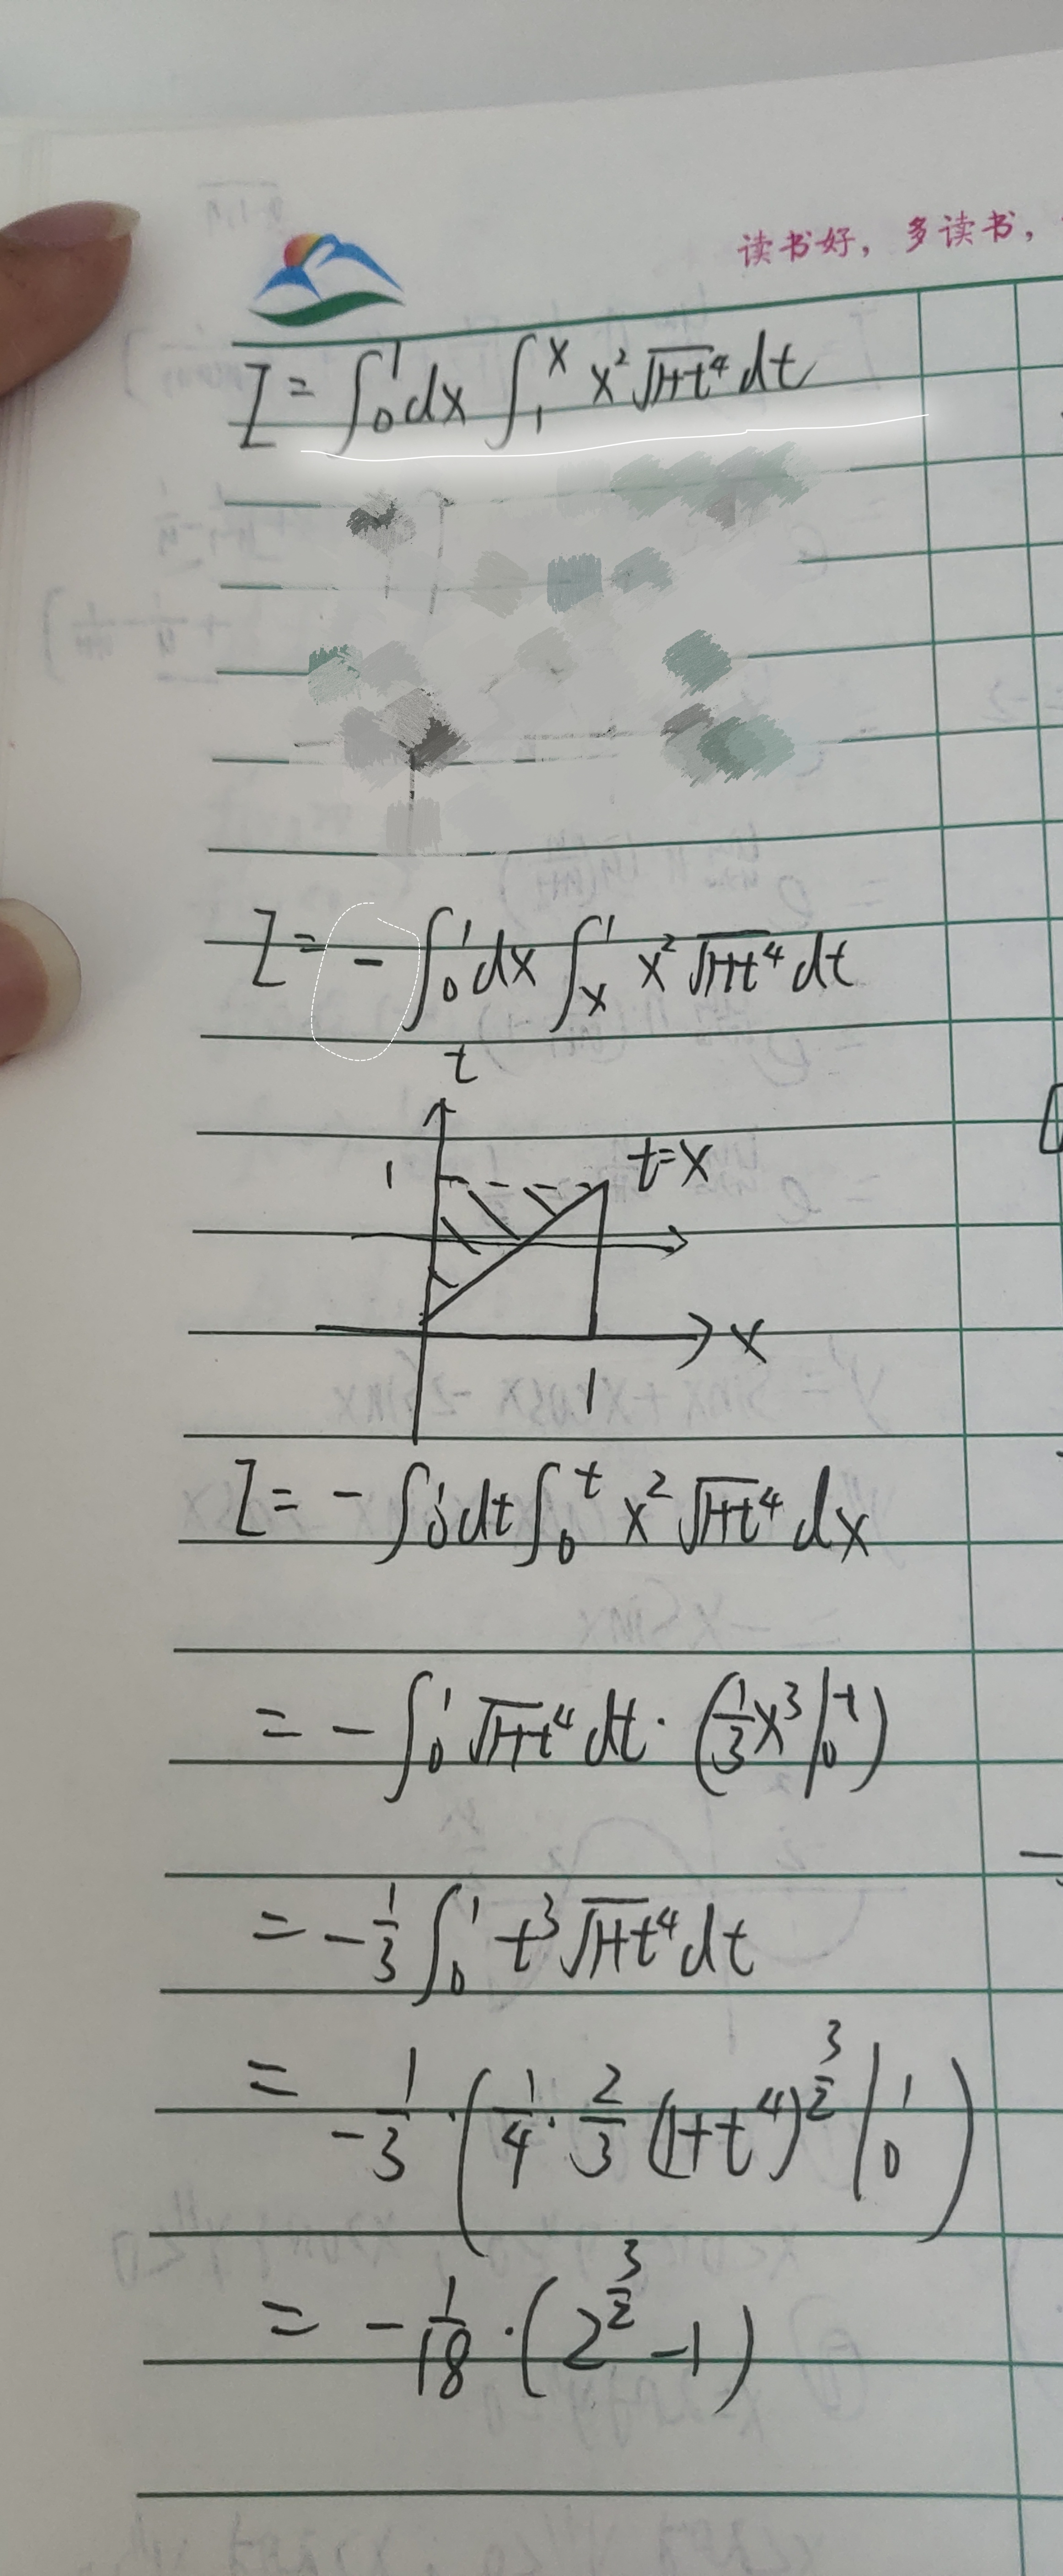 读书好，多读书，
I = ∫₀¹ dx ∫₁ˣ x² √(1+t⁴) dt
I = - ∫₀¹ dx ∫ₓ¹ x² √(1+t⁴) dt
t
1
t=x
x
1
I = - ∫₀¹ dt ∫₀ᵗ x² √(1+t⁴) dx
= - ∫₀¹ √(1+t⁴) dt · (1/3 x³ |₀ᵗ)
= - 1/3 ∫₀¹ t³ √(1+t⁴) dt
= - 1/3 · (1/4 · 2/3 (1+t⁴)^(3/2) |₀¹)
= - 1/18 · (2^(3/2) - 1)